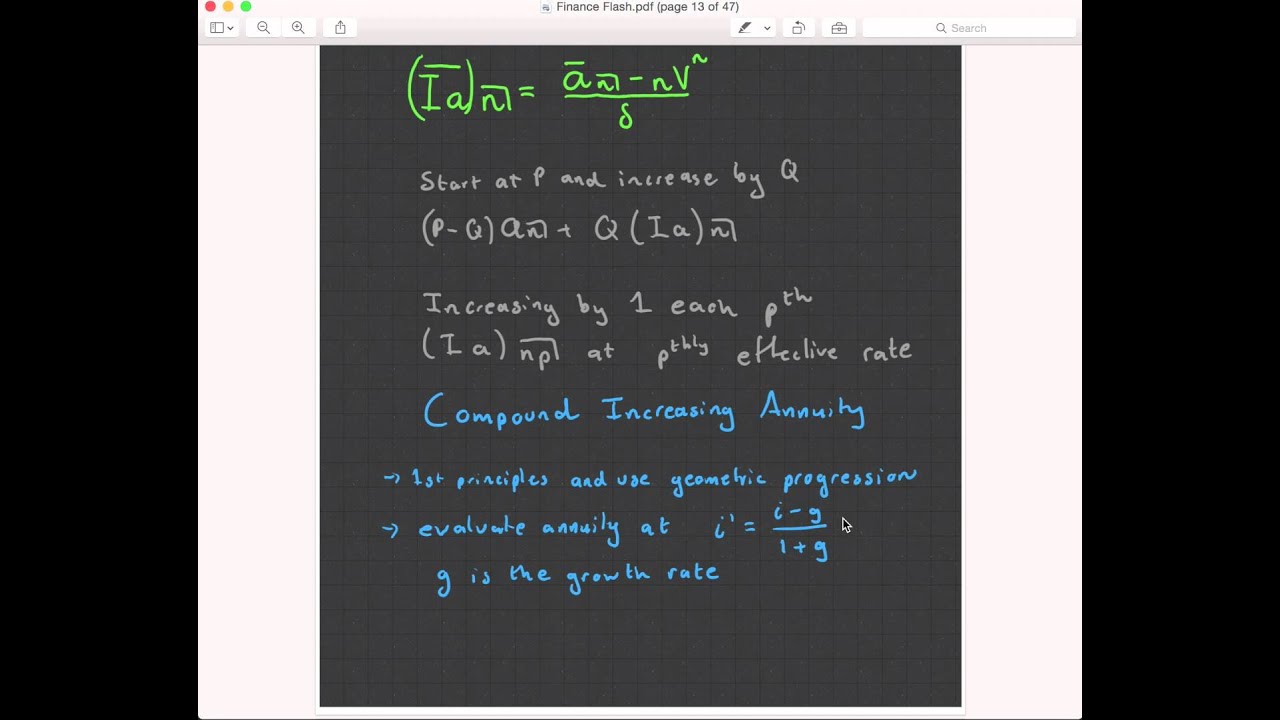 Finance Flash.pdf (page 13 of 47)
Search
(I̅a̅)n̅| = (a̅n̅| - nVⁿ)/δ
Start at P and increase by Q
(P-Q) an̅| + Q (Ia)n̅|
Increasing by 1 each pᵗʰ
(Ia) n̅p̅| at pᵗʰˡʸ effective rate
Compound Increasing Annuity
→ 1st principles and use geometric progression
→ evaluate annuity at i' = (i-g)/(1+g)
g is the growth rate